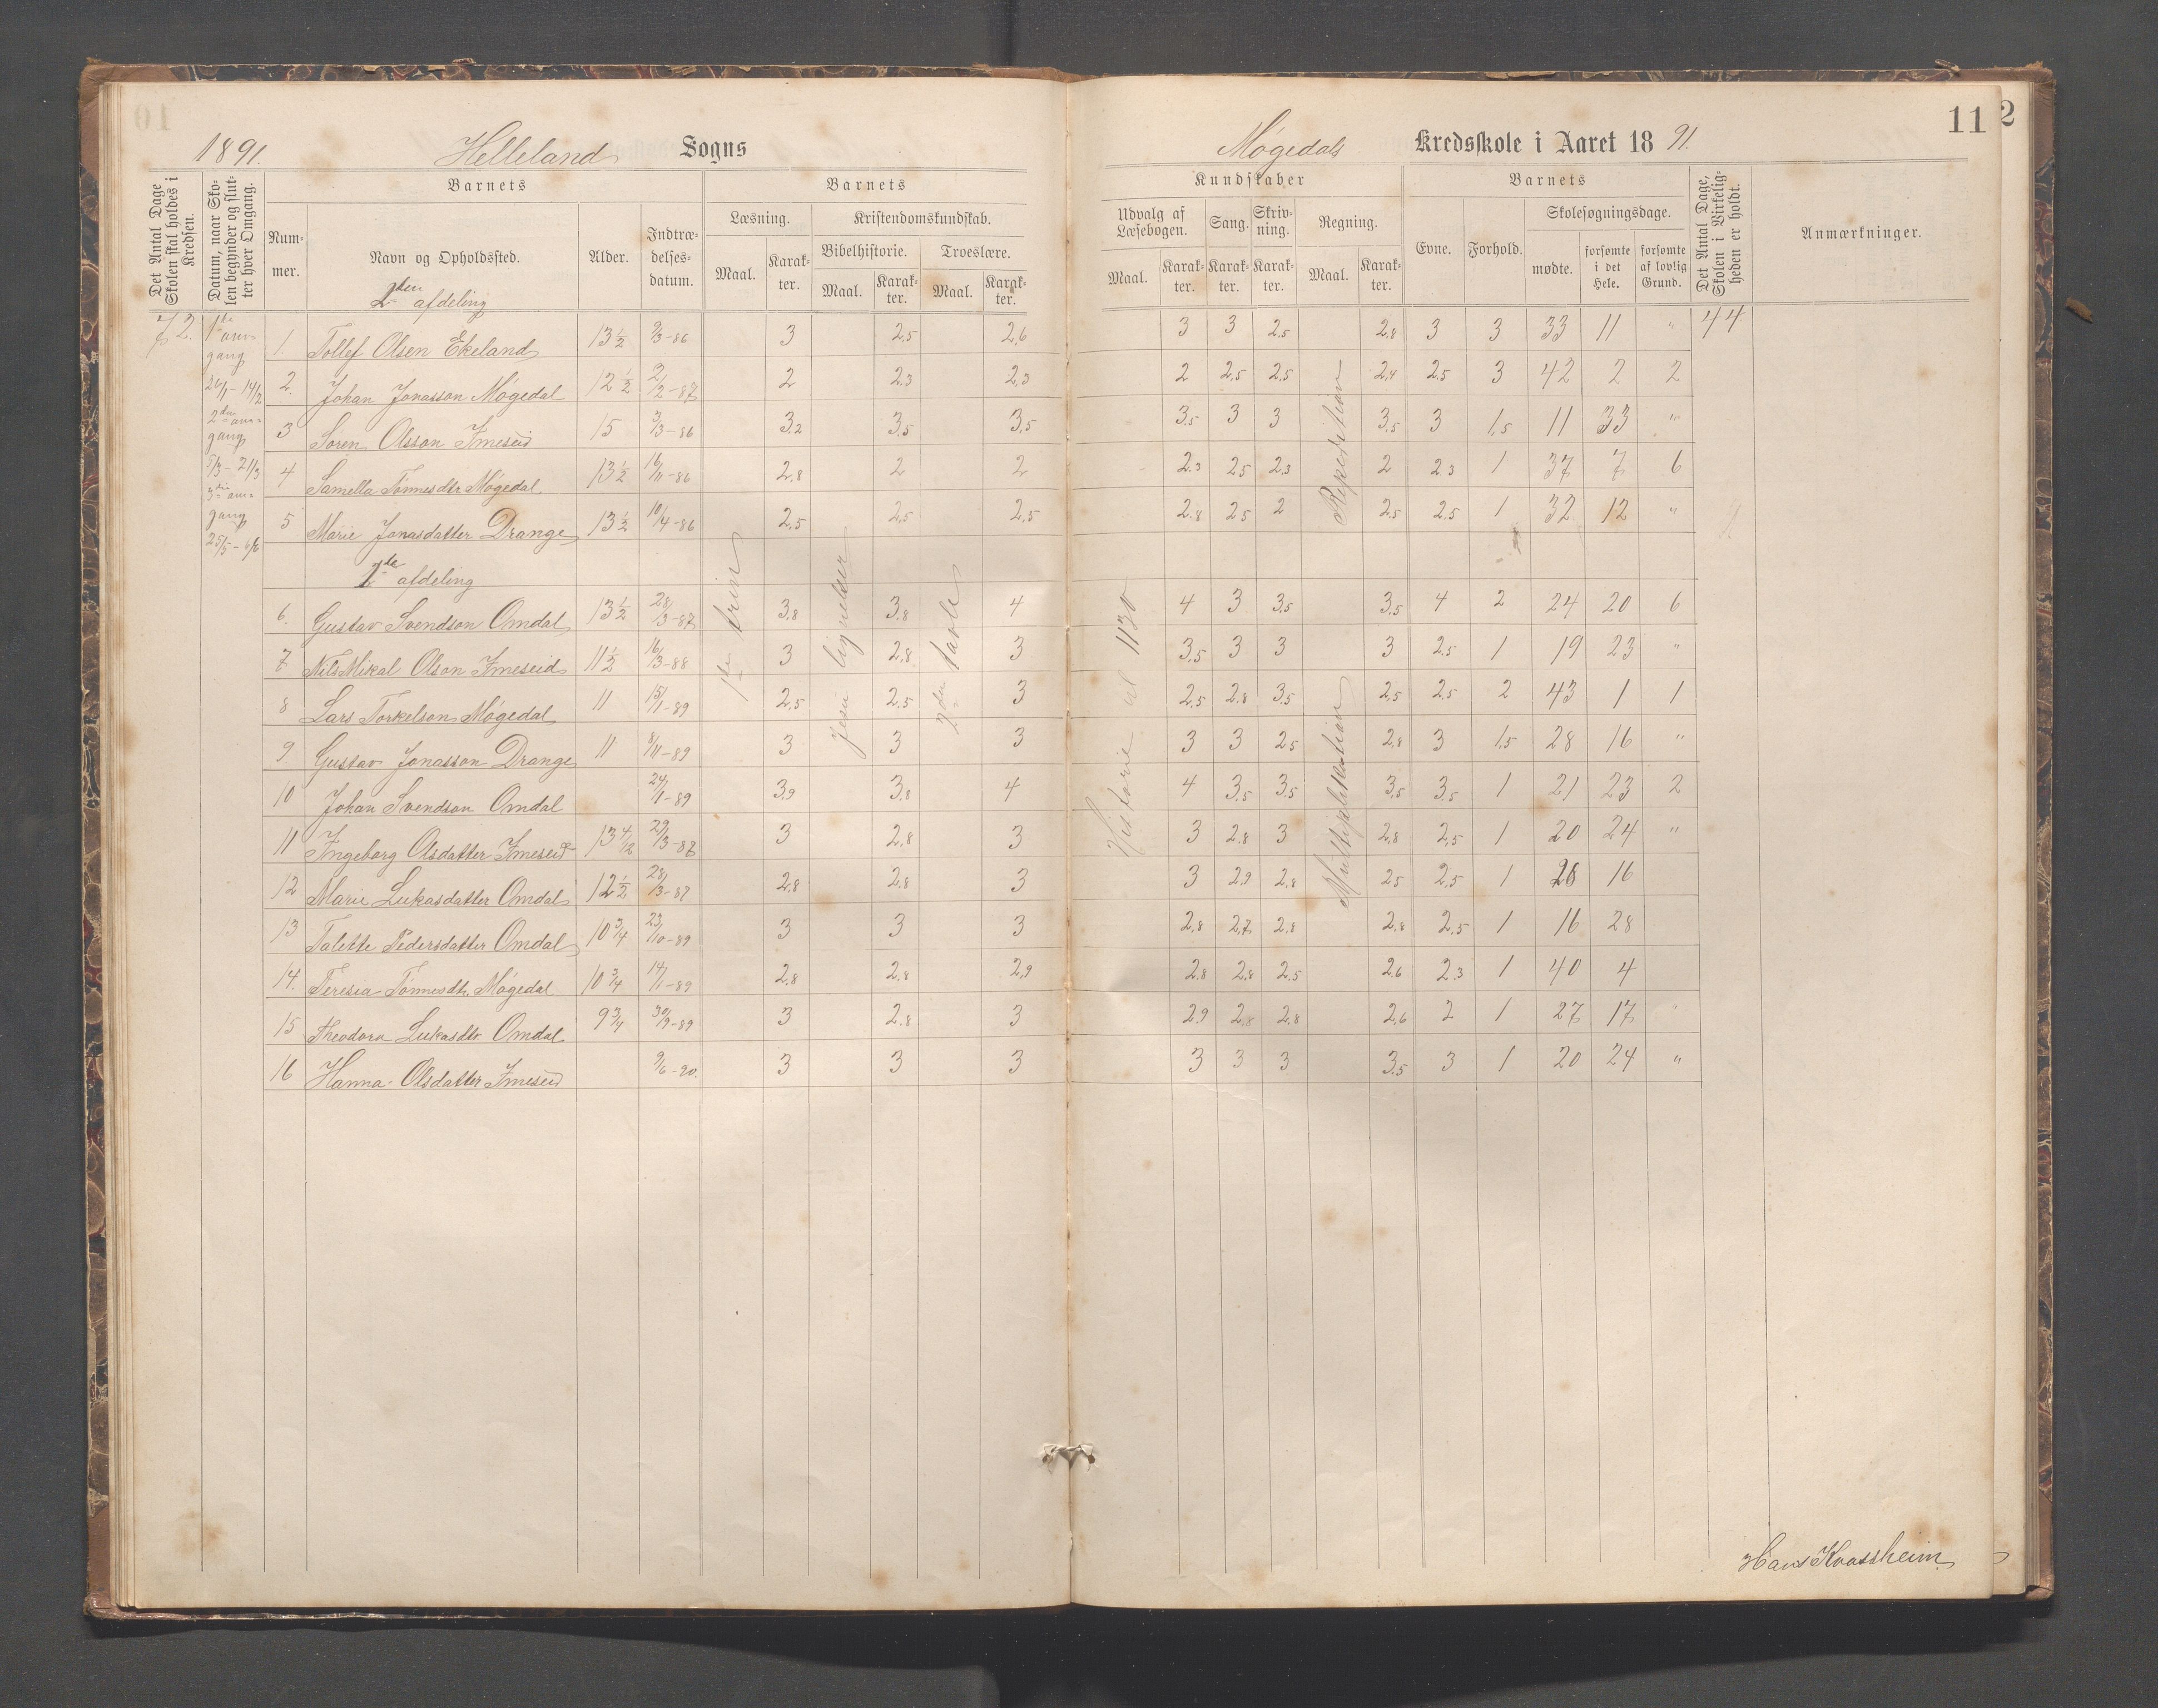 1891. Helleland Sogns
Møgedals Kredsskole i Aaret 18 91. 11 2
Det Antal Dage Skolen skal holdes i Kredsen.
Datum, naar Skolen begynder og slutter hver Omgang.
Barnets
Nummer.
Navn og Opholdssted.
Alder.
Indtrædelsesdatum.
Barnets
Læsning.
Maal. Karakter.
Kristendomskundskab.
Bibelhistorie.
Maal. Karakter.
Troeslære.
Maal. Karakter.
Kundskaber
Udvalg af Læsebogen.
Maal. Karakter.
Sang.
Karakter.
Skrivning.
Karakter.
Regning.
Maal. Karakter.
Barnets
Evne.
Forhold.
Skolesøgningsdage.
mødte.
forsømte i det Hele.
forsømte af lovlig Grund.
Det Antal Dage, Skolen i Virkeligheden er holdt.
Anmærkninger.
2den afdeling
72. 1ste omgang 26/1 - 14/2
2den omgang 5/3 - 21/3
3die omgang 25/5 - 6/6
44
1. Tollef Olsen Ekeland 13 1/2 2/3-86 3 2,5 2,6 3 3 2,5 2,8 3 3 33 11 "
2. Johan Jonasson Møgedal 12 1/2 2/12-87 2 2,3 2,3 2 2,5 2,5 2,4 2,5 3 42 2 2
3 Søren Olsson Imeseid 15 3/3-86 3,2 3,5 3,5 3,5 3 3 3,5 3 1,5 11 33 "
4 Samella Tønnesdtr Møgedal 13 1/2 16/11-86 2,8 2 2 2,3 2,5 2,3 2 2,3 1 37 7 6
5 Marie Jonasdatter Drange 13 1/2 10/4-86 2,5 2,5 2,5 2,8 2,5 2 2,5 2,5 1 32 12 "
Repetition
1ste afdeling
6. Gustav Svendson Omdal 13 1/2 28/3-87 3,8 3,8 4 4 3 3,5 3,5 4 2 24 20 6
7 Nils Mikal Olson Imeseid 11 1/2 16/3-88 3 2,8 3 3,5 3 3 3 2,5 1 19 23 "
8 Lars Torkelson Møgedal 11 15/1-89 2,5 2,5 3 2,5 2,8 3,5 2,5 2,5 2 43 1 1
9 Gustav Jonasson Drange 11 8/11-89 3 3 3 3 3 2,5 2,8 3 1,5 28 16 "
10 Johan Svendson Omdal 24/1-89 3,9 3,8 4 4 3,5 3,5 3,5 3,5 1 21 23 2
11 Ingeborg Olsdatter Imeseid 13 4/12 29/3-87 3 2,8 3 3 2,8 3 2,8 2,5 1 20 24 "
12 Marie Lukasdatter Omdal 12 1/2 28/3-87 2,8 2,8 3 3 2,9 2,8 2,5 2,5 1 28 16
13 Talette Pedersdatter Omdal 10 3/4 23/10-89 3 3 3 2,8 2,7 2,8 2,8 2,5 1 16 28
14. Teresia Tønnesdtr. Møgedal 10 3/4 14/1-89 2,8 2,8 2,9 2,8 2,8 2,5 2,6 2,3 1 40 4
15 Theodora Lukasdtr. Omdal 9 3/4 30/9-89 3 2,8 3 2,9 2,8 2,8 2,6 2 1 27 17 "
16 Hanna Olsdatter Imeseid 9/6-90. 3 3 3 3 3 3 3,5 3 1 20 24 "
1ste trin
Jesu lignelser
2den tavle
Historie til 1130
Multiplikation
Hans Kvassheim